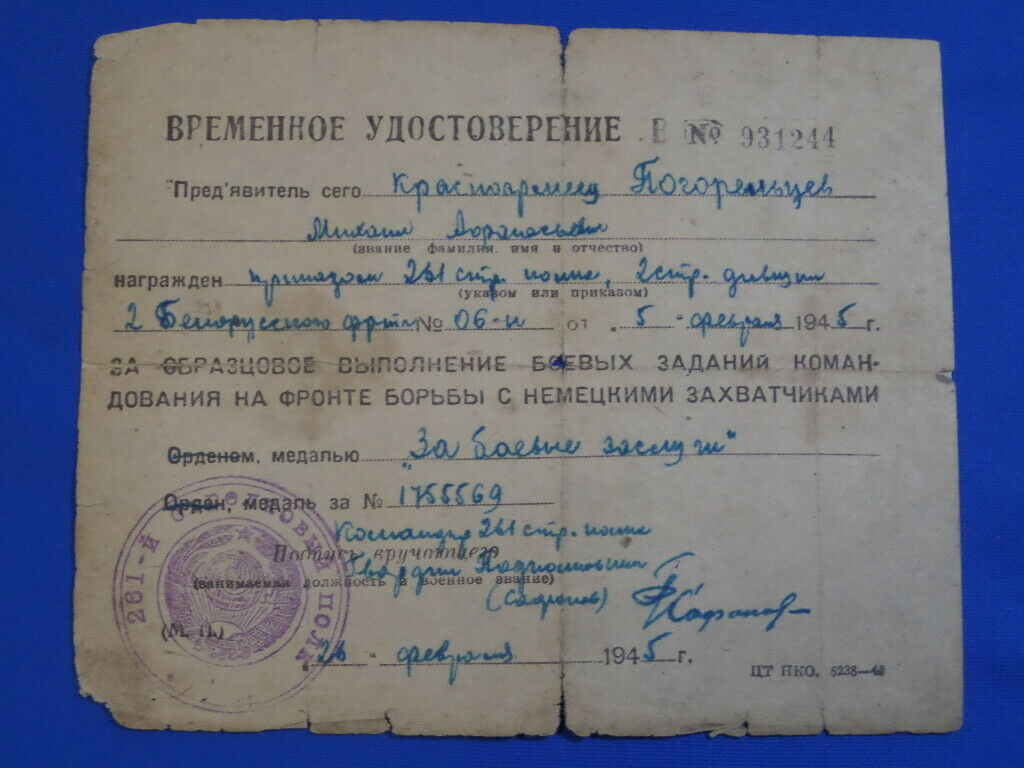 ВРЕМЕННОЕ УДОСТОВЕРЕНИЕ В № 931244
Пред'явитель сего Красноармеец Погорельцев
Михаил Афанасьевич
(звание фамилия, имя и отчество)
награжден приказом 261 стр. полка, 2 стр. дивизии
(указом или приказом)
2 Белорусского фрта № 06-н от „5" февраля 1945 г.
ЗА ОБРАЗЦОВОЕ ВЫПОЛНЕНИЕ БОЕВЫХ ЗАДАНИЙ КОМАН-
ДОВАНИЯ НА ФРОНТЕ БОРЬБЫ С НЕМЕЦКИМИ ЗАХВАТЧИКАМИ
Орденом, медалью „За боевые заслуги"
Орден, медаль за № 1755569
Командир 261 стр. полка
Подпись вручающего
Гвардии Подполковник
(занимаемая должность и военное звание)
(Сафонов) Сафонов
261-Й СТРЕЛКОВЫЙ ПОЛК
(М. П.)
„26" февраля 1945 г.
ЦТ НКО. 5238—43